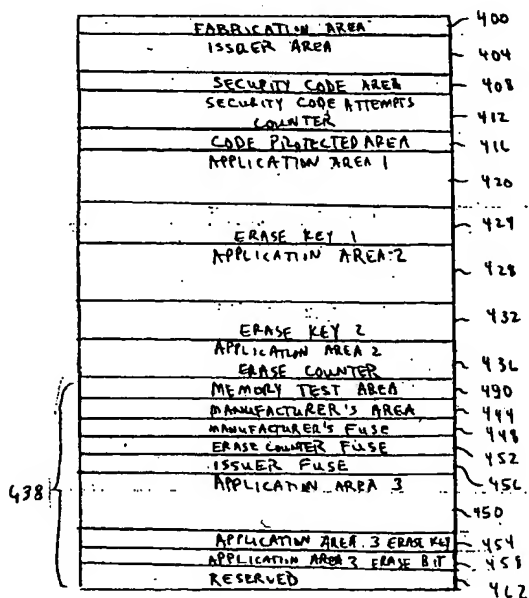 FABRICATION AREA 400
ISSUER AREA 404
SECURITY CODE AREA 408
SECURITY CODE ATTEMPTS
COUNTER 412
CODE PROTECTED AREA 416
APPLICATION AREA 1
420
424
ERASE KEY 1
APPLICATION AREA 2
428
432
ERASE KEY 2
APPLICATION AREA 2
436
ERASE COUNTER
MEMORY TEST AREA 490
MANUFACTURER'S AREA 444
MANUFACTURER'S FUSE 448
ERASE COUNTER FUSE 452
ISSUER FUSE
APPLICATION AREA 3 456
438
450
APPLICATION AREA 3 ERASE KEY 454
APPLICATION AREA 3 ERASE BIT 458
RESERVED
462